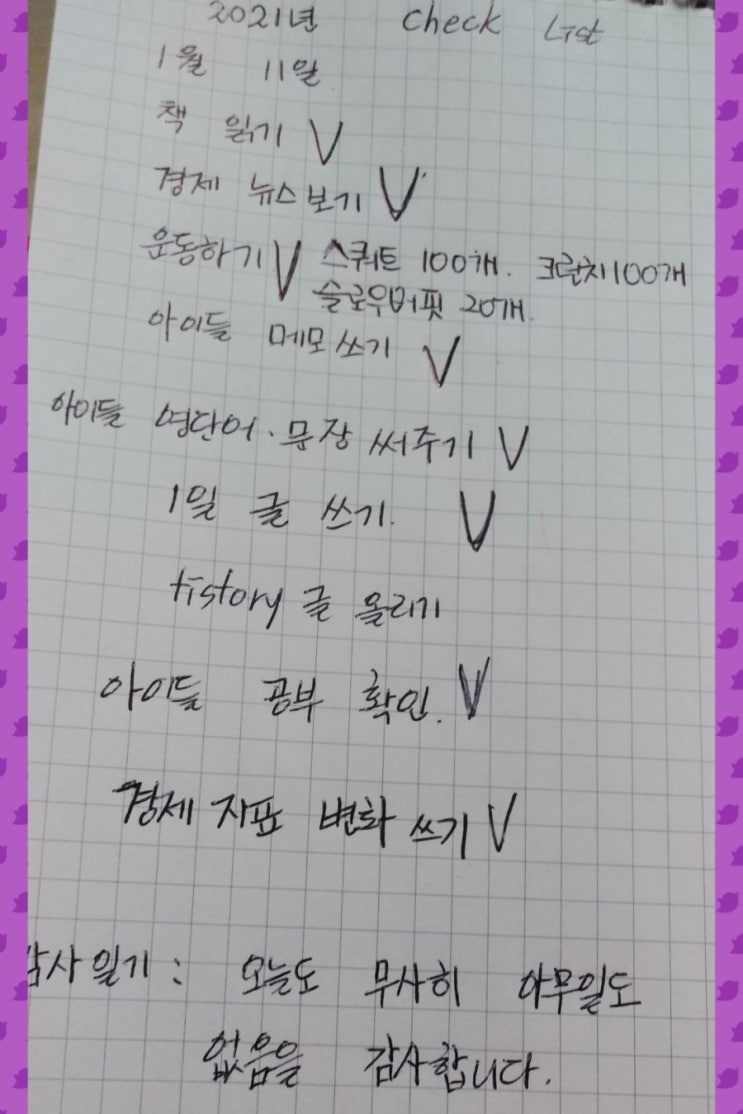 2021년 check List
1월 11일
책 읽기 V
경제 뉴스보기 V
운동하기 V 스쿼트 100개. 크런치100개
슬로우버핏 20개.
아이들 메모쓰기 V
아이들 영단어. 문장 써주기 V
1일 글 쓰기. V
tistory 글 올리기
아이들 공부 확인. V
경제 지표 변화 쓰기 V
감사일기 : 오늘도 무사히 아무일도
없음을 감사합니다.